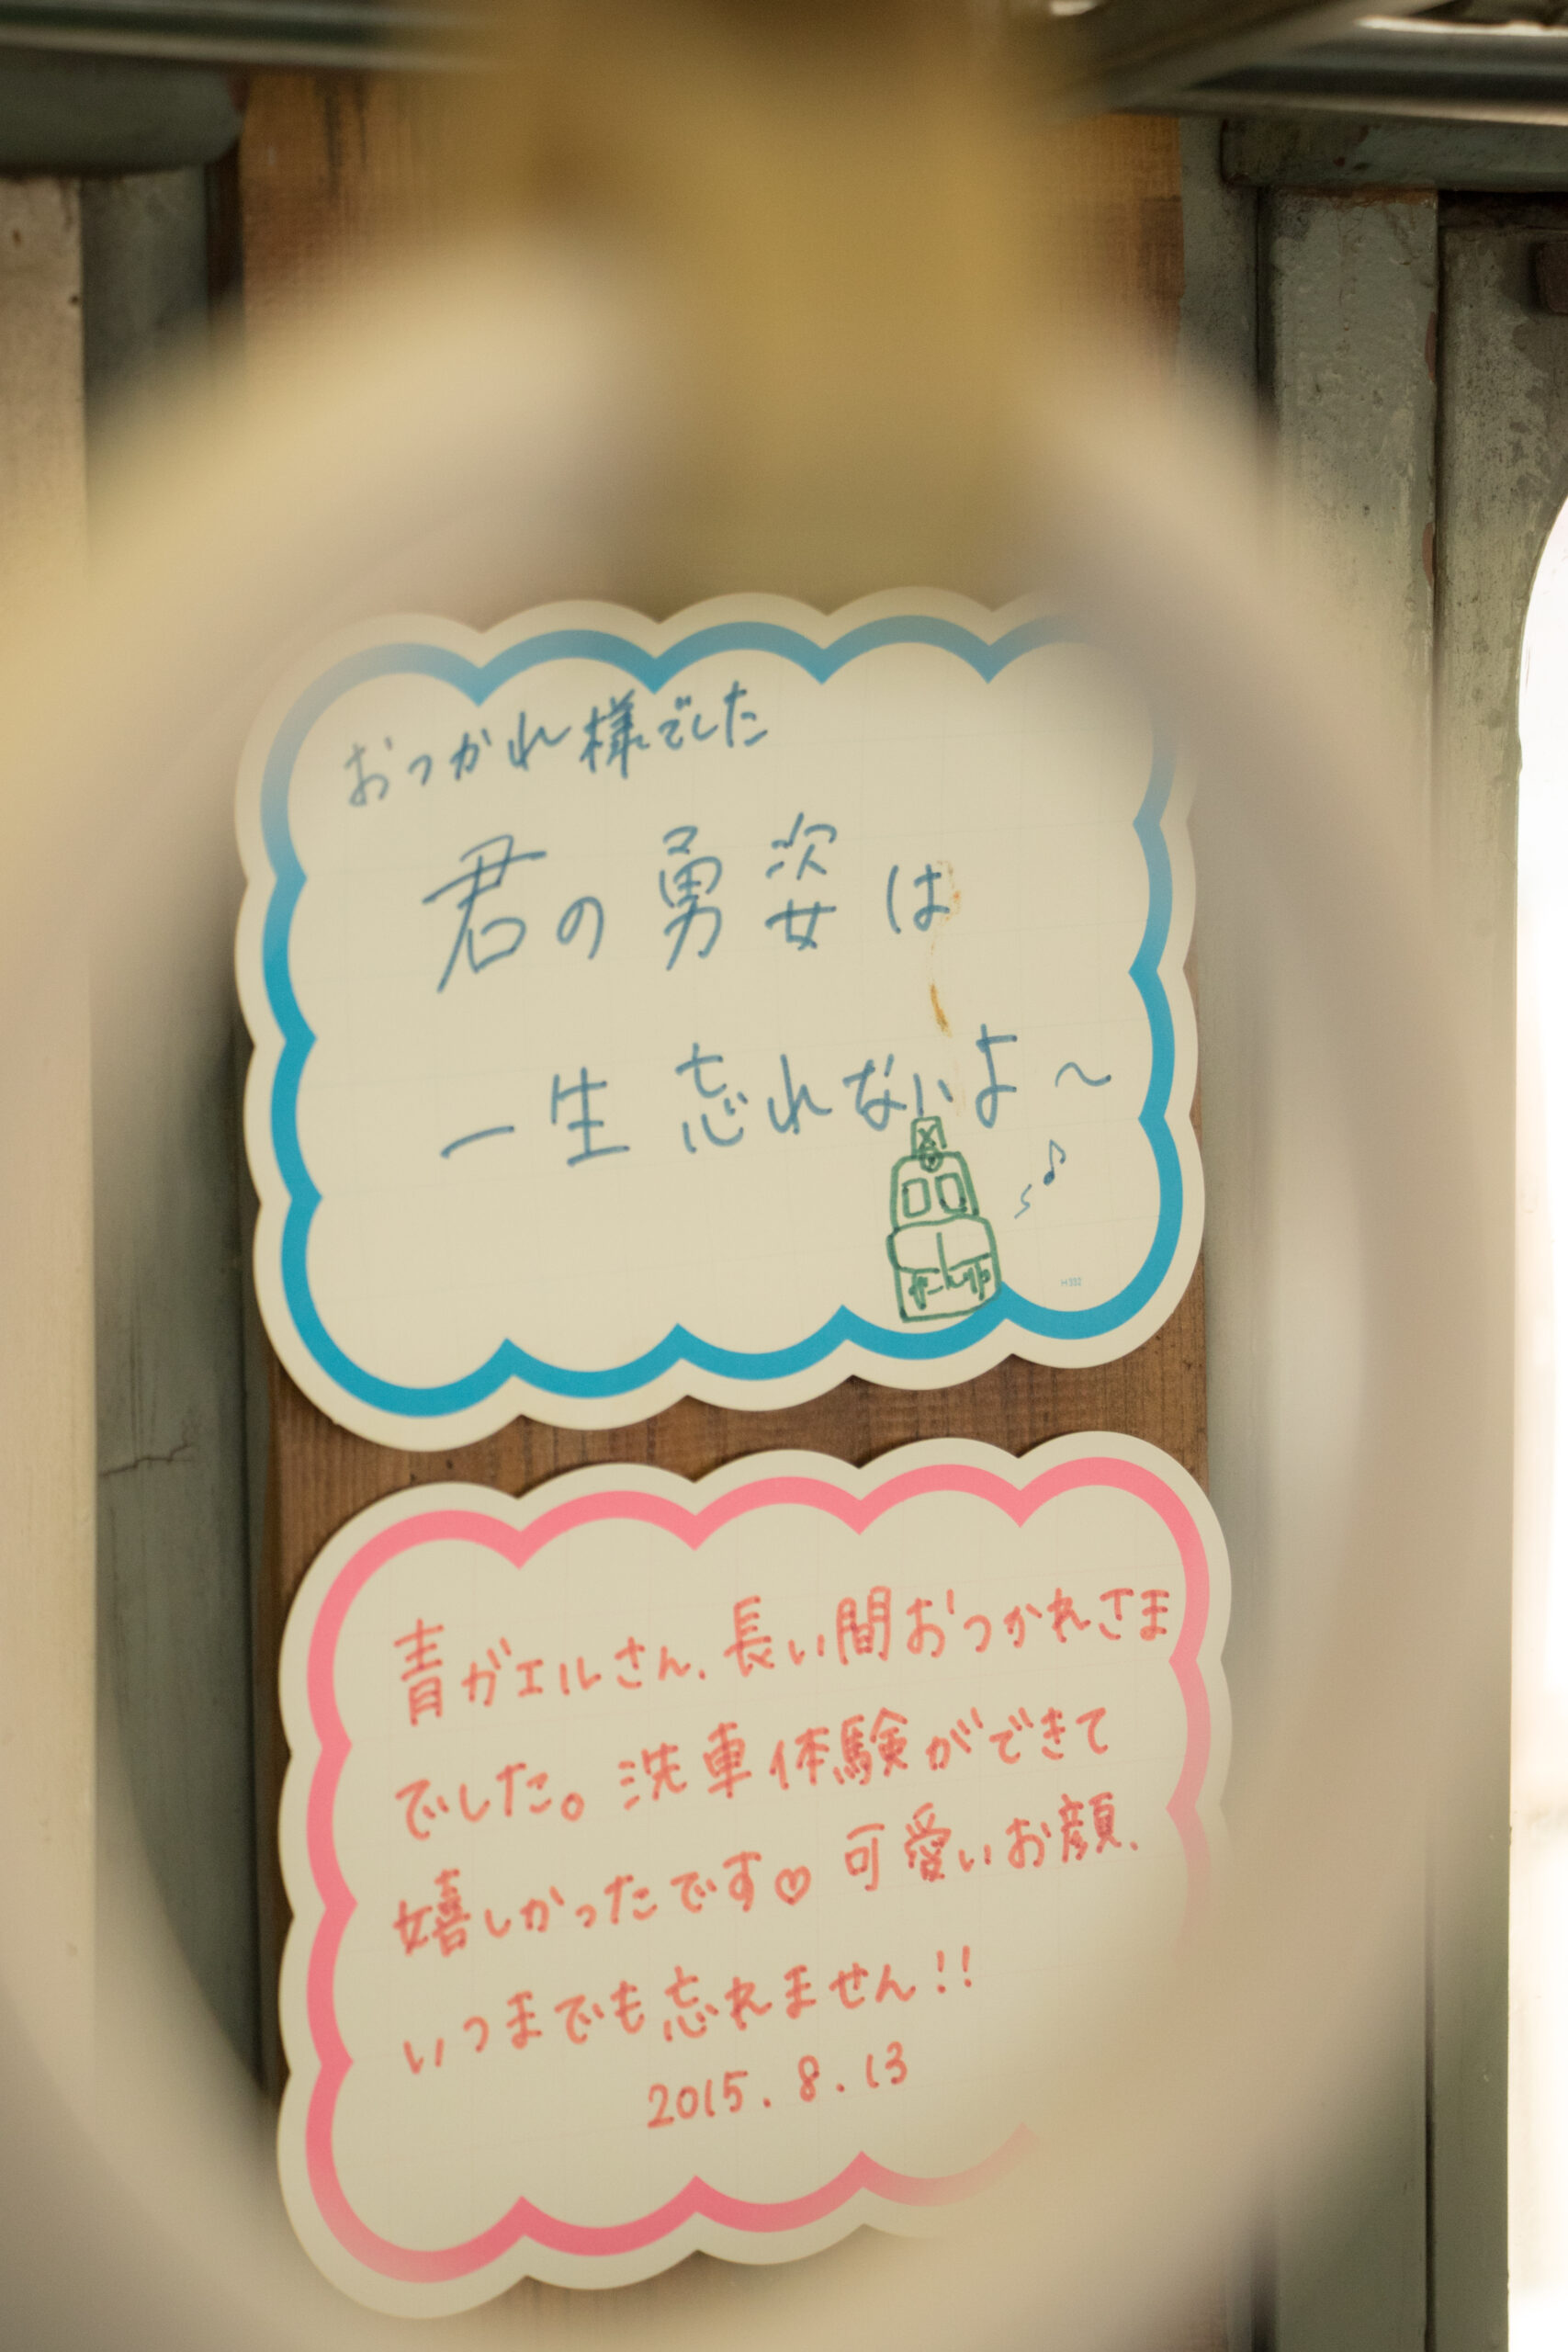 おつかれ様でした
君の勇姿は
一生忘れないよ～
青ガエルさん、長い間おつかれさま
でした。洗車体験ができて
嬉しかったです♡可愛いお顔、
いつまでも忘れません!!
2015.8.13